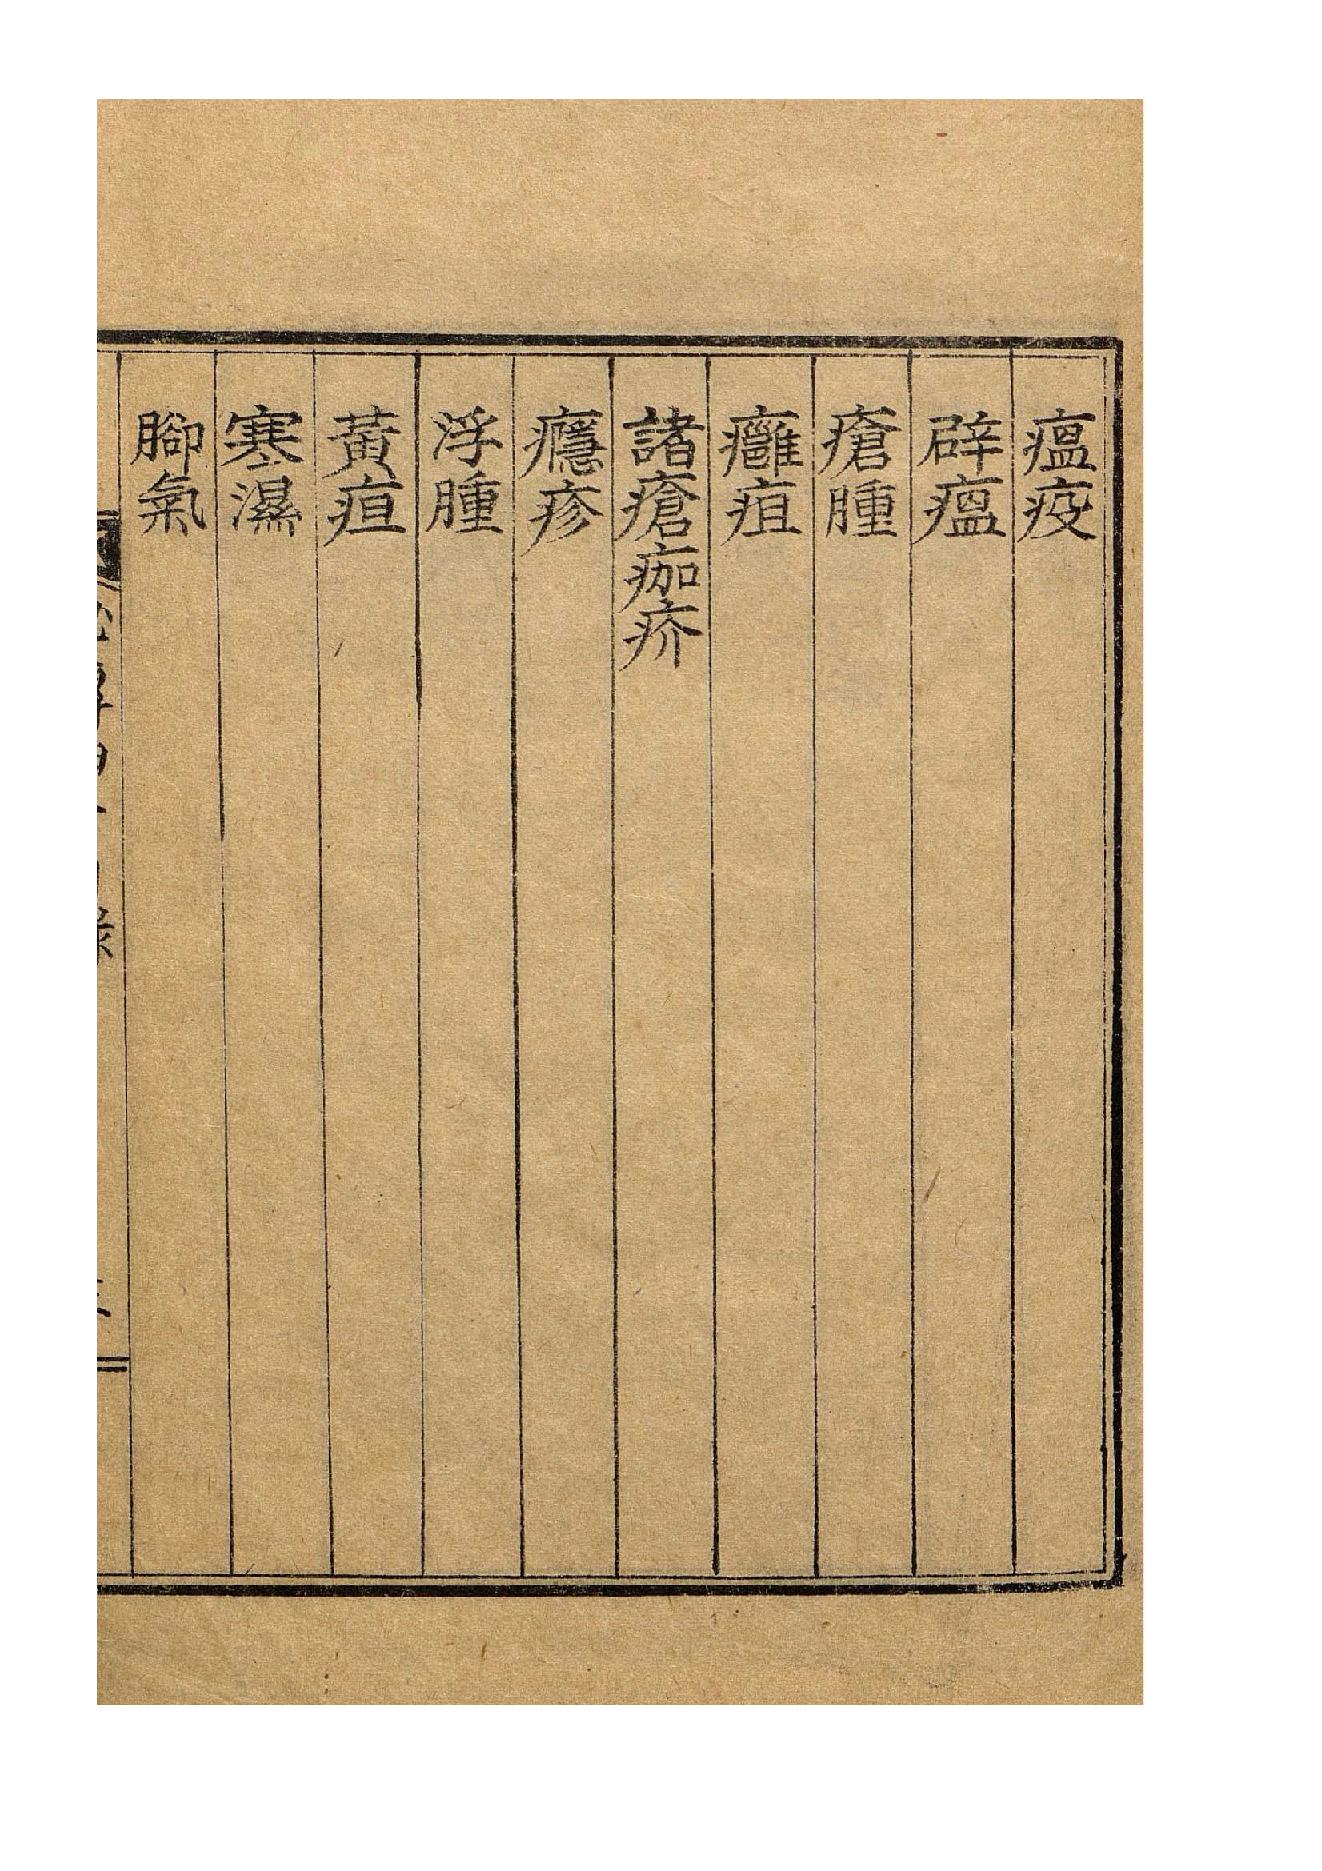 瘟疫
辟瘟
瘡腫
癰疽
諸瘡痂疥
癮疹
浮腫
黃疸
寒濕
腳氣